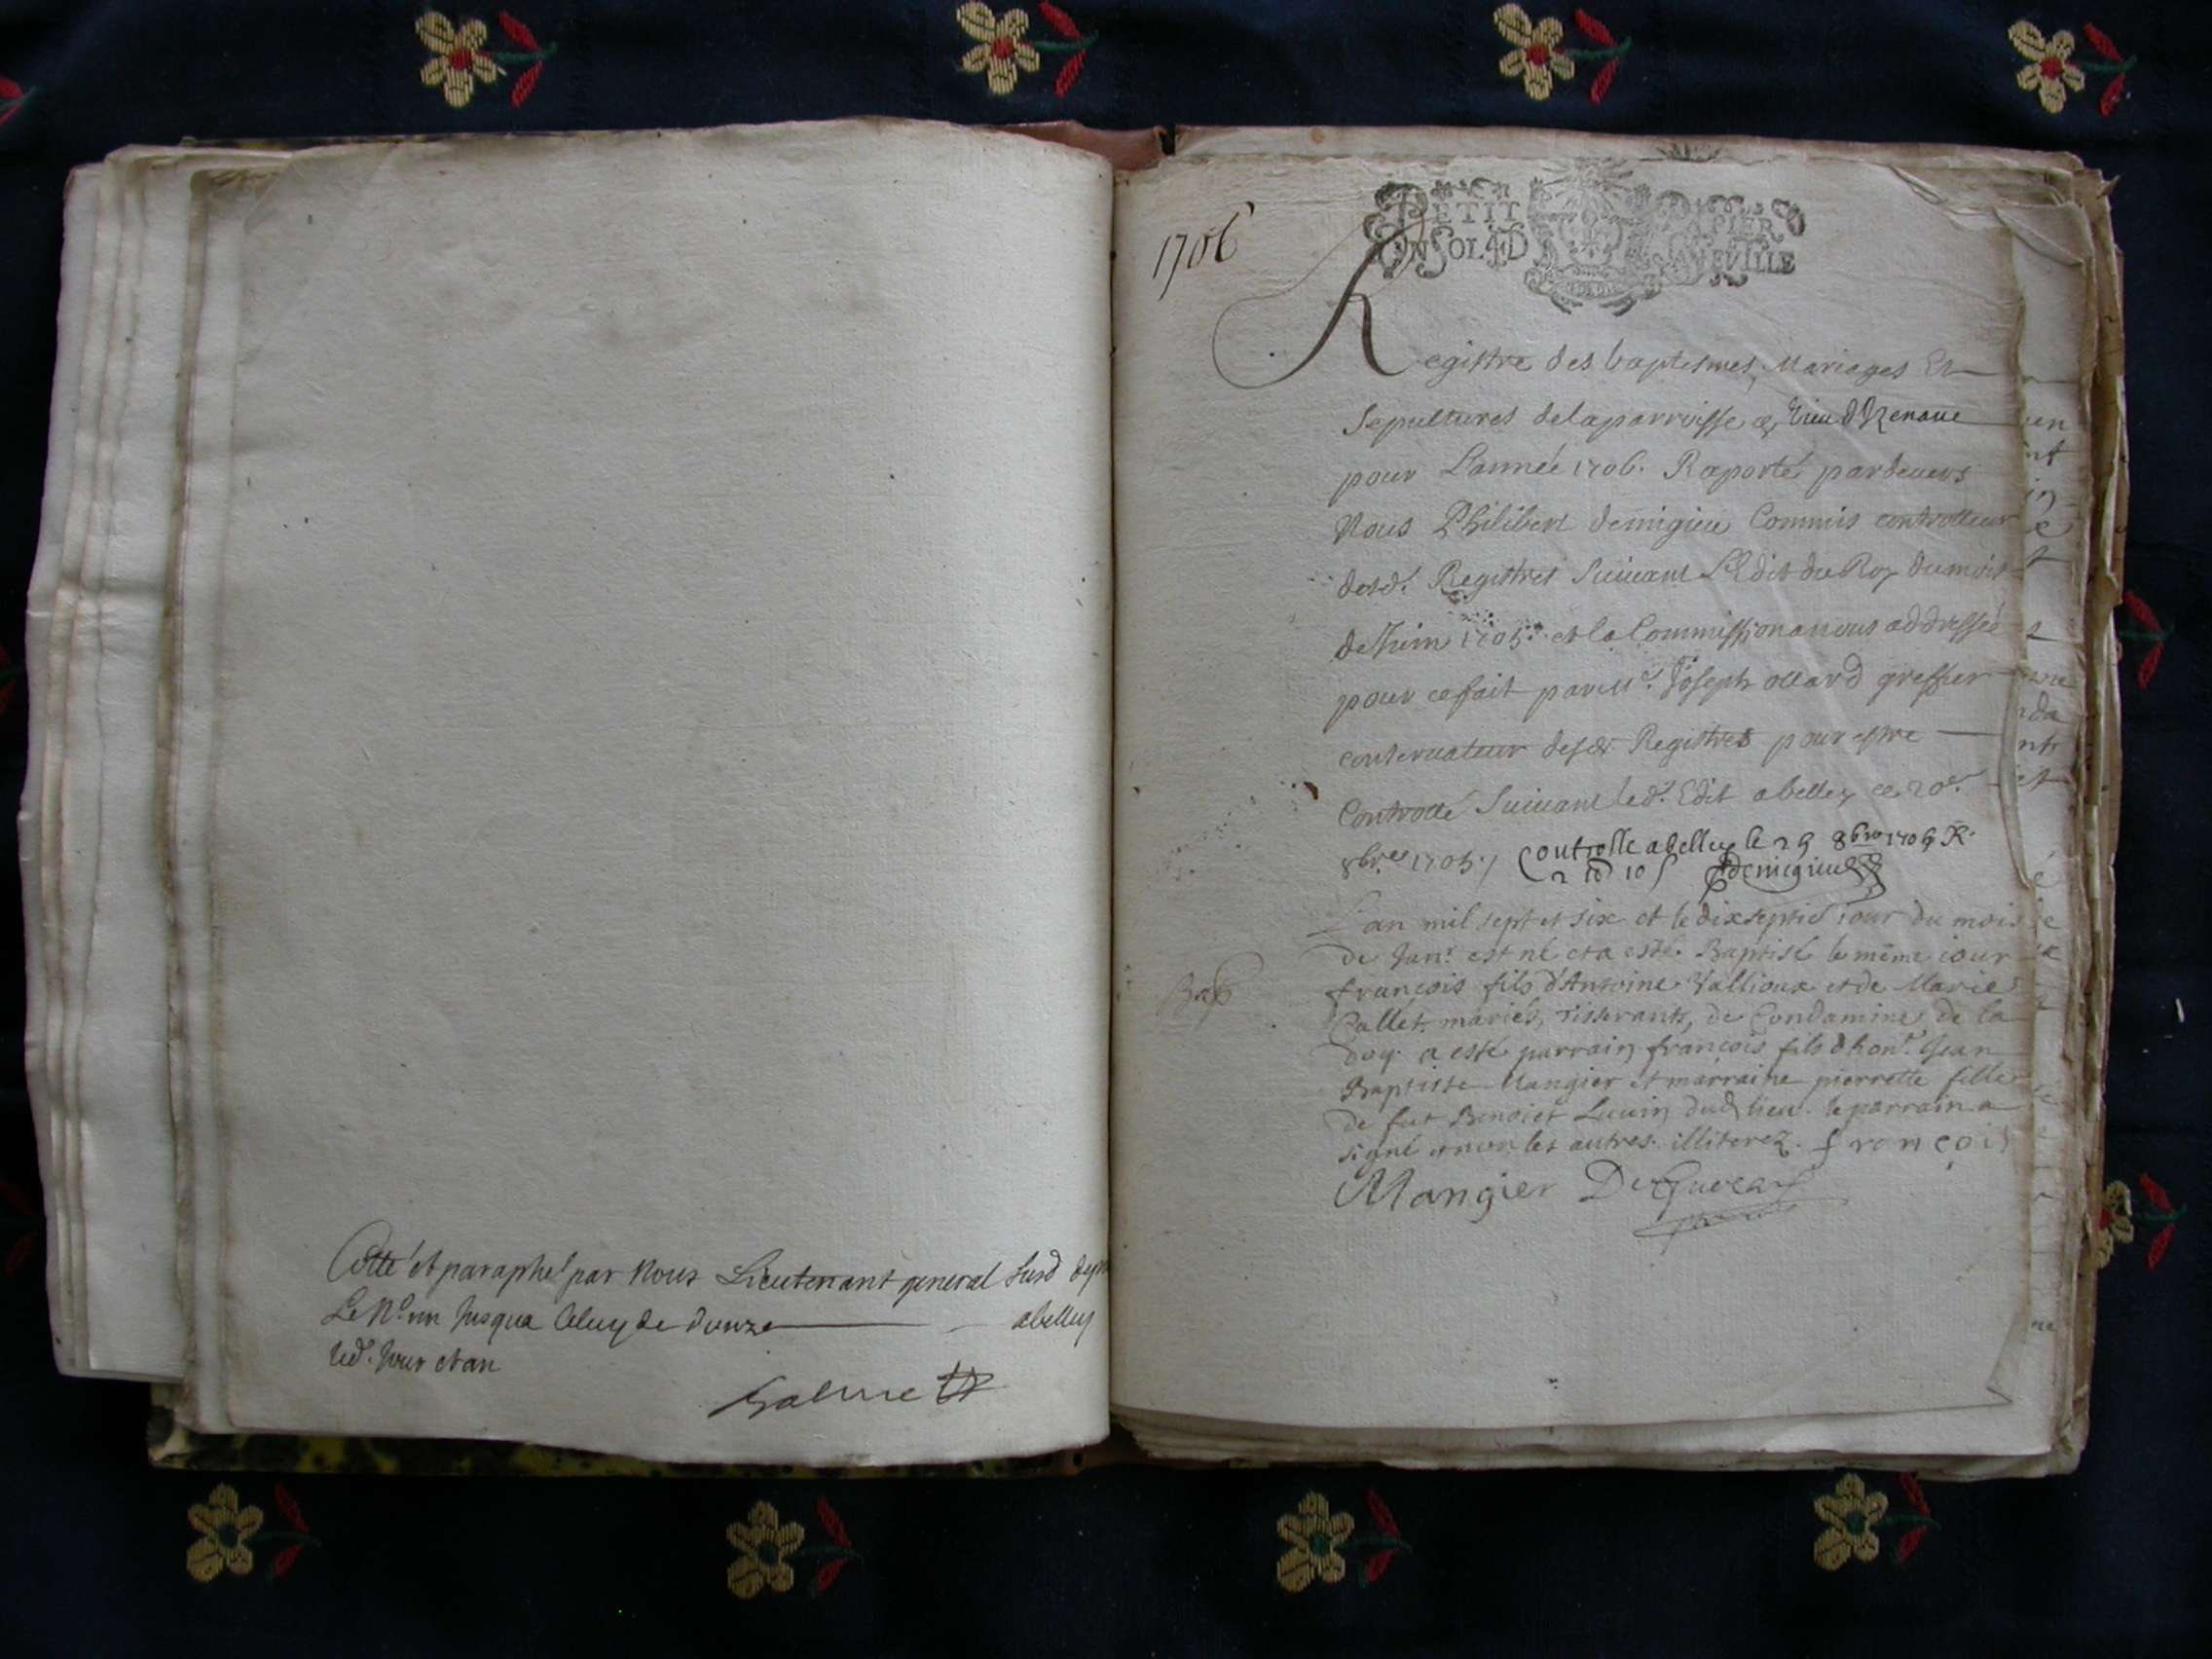 Cotté et paraphé par Nous Lieutenant general susd depuis
Le No. un jusqua celuy de douze abelley
led. jour et an
Balme
1706
PETIT PAPIER
UN SOL 4 D LA FEVILLE
Registre des baptesmes, Mariages Et
Sepultures de la parroisse de Vieu d'Izenaue
pour L'année 1706. Raporté pardeuers
Nous Philibert demigieu Commis controlleur
desd. Registres Suiuant L'Edit du Roy du mois
de Juin 1705. et la Commission a nous addressée
pour ce fait par Me. Joseph ollard greffier
conseruateur desd. Registres pour estre
Controllé Suiuant led. Edit abelley ce 20e.
8bre 1705. Controlle abelley le 25 8bre 1705 R.
2 tt 10 s Demigieu
L'an mil sept et six et le dixseptie iour du mois
de Janr. est né et a esté Baptisé le même iour
Bap
francois fils d'Antoine Vallioux et de Marie
Callet mariés, tisserants, de Condamine de la
doy. a esté parrain françois fils d'hon. Jean
Baptiste Mangier et marraine pierrette fille
de fut Benoict Luuin dud lieu. le parrain a
signé et non les autres illiterez. françois
Mangier